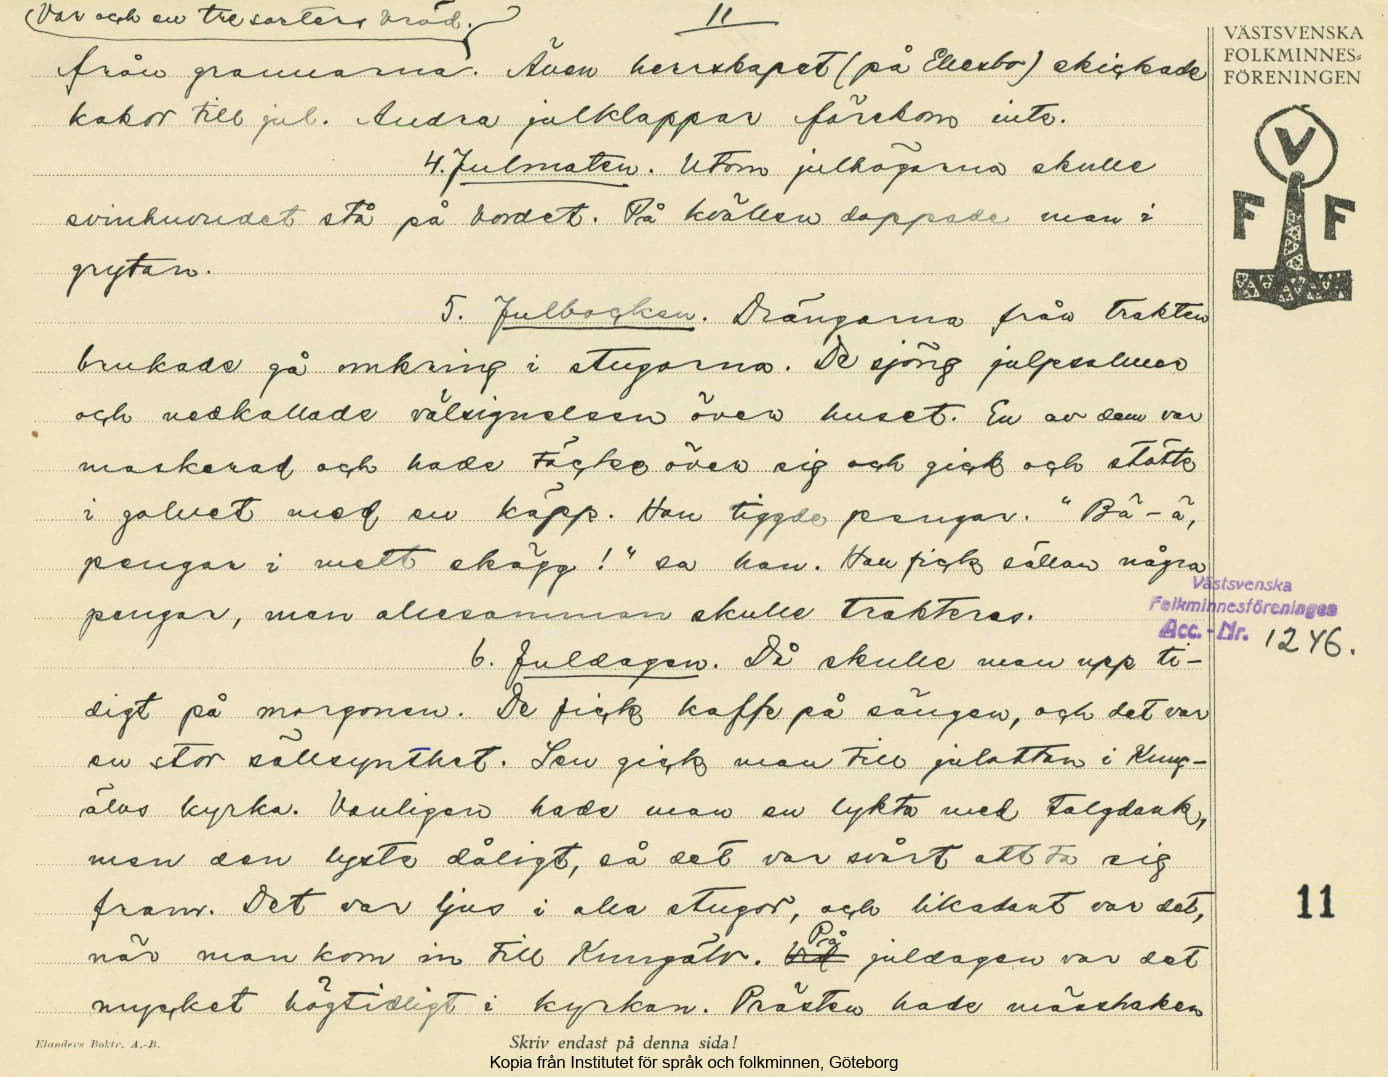 (Var och en tre sorters bröd.)
11
från grannarna. Även herrskapet (på Ellesbo) skickade
kakor till jul. Andra julklappar förekom inte.
4. Julmaten. Utom julhögarna skulle
svinhuvudet stå på bordet. På kvällen doppade man i
grytan.
5. Julbocken. Drängarna från trakten
brukade gå omkring i stugorna. De sjöng julpsalmer
och nedkallade välsignelsen över huset. En av dem var
maskerad och hade täcke över sig och gick och stötte
i golvet med en käpp. Han tiggde pengar. "Bä-ä,
pengar i mett skägg!" sa han. Han fick sällan några
pengar, men allesamman skulle trakteras.
6. Juldagen. Då skulle man upp ti-
digt på morgonen. De fick kaffe på sängen, och det var
en stor sällsynthet. Sen gick man till julottan i Kung-
älvs kyrka. Vanligen hade man en lykta med talgdank,
men den lyste dåligt, så det var svårt att ta sig
fram. Det var ljus i alla stugor, och likadant var det,
när man kom in till Kungälv. På juldagen var det
mycket högtidligt i kyrkan. Prästen hade mässhaken
VÄSTSVENSKA
FOLKMINNES-
FÖRENINGEN
V
F F
Västsvenska
Folkminnesföreningen
Acc.-Nr. 1246.
11
Elanders Boktr. A.-B.
Skriv endast på denna sida!
Kopia från Institutet för språk och folkminnen, Göteborg